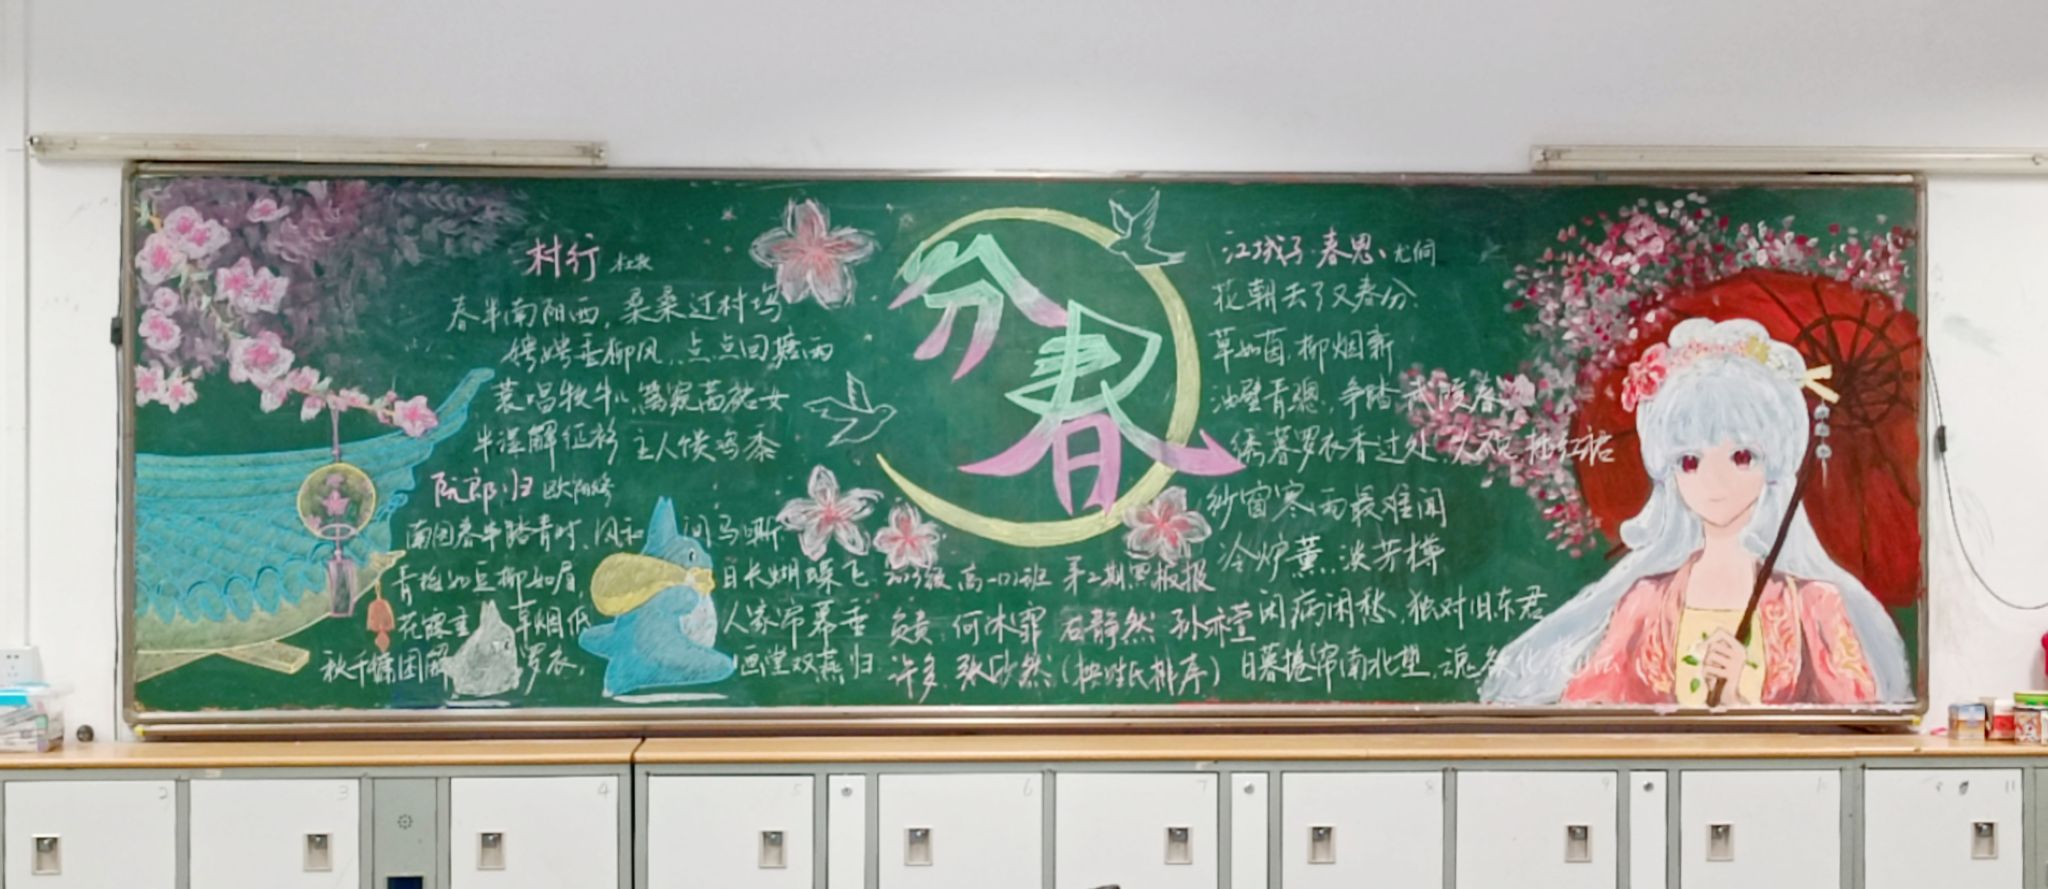 村行 杜牧
春半南阳西，柔桑过村坞
娉娉垂柳风，点点回塘雨
蓑唱牧牛儿，篱窥茜裙女
半湿解征衫 主人馈鸡黍
阮郎归 欧阳修
南园春半踏青时，风和闻马嘶
青梅如豆柳如眉，日长蝴蝶飞
花露重 草烟低 人家帘幕垂
秋千慵困解罗衣，画堂双燕归
分春
江城子·春思、尤侗
花朝去了又春分
草如茵，柳烟新
油壁青骢，争踏武陵春
罗衣香过处，红裙
纱窗寒雨最难闻
冷炉薰，淡芳樽
闲病闲愁、独对旧东君
日暮捲帘南北望，魂欲化
级高一(1)班 第2期黑板报
负责：何沐霏 石静然 孙亦萱
许多 张 然（按姓氏排序）
2
3
4
5
6
7
8
9
11